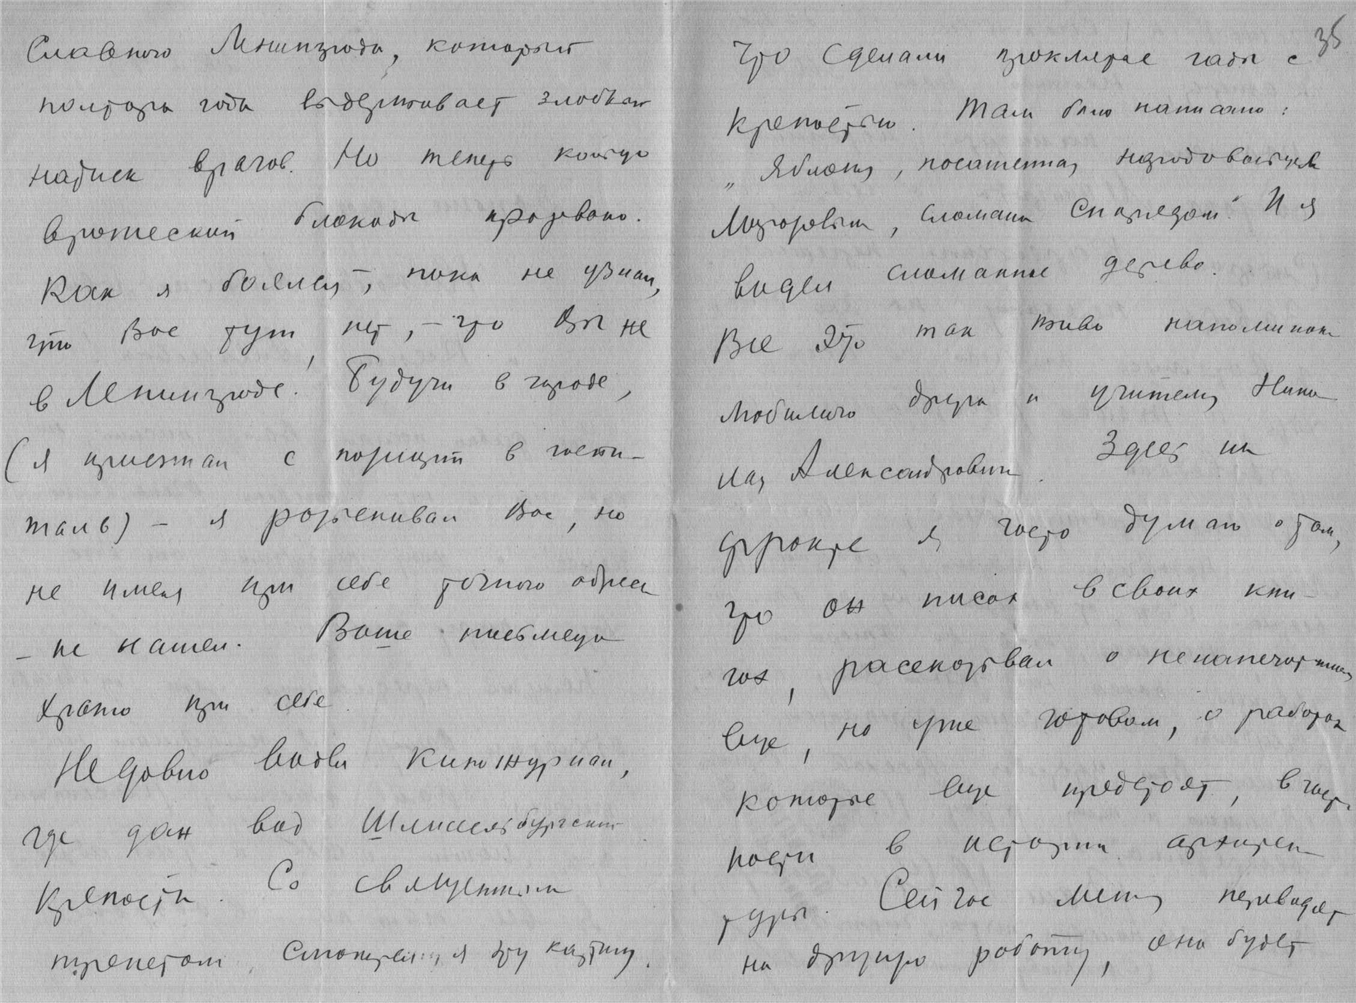 славного Ленинграда, который
полтора года выдерживает злобный
натиск врагов. Но теперь кольцо
вражеской блокады прорвано.
Как я боялся, пока не узнал,
что Вас тут нет, – что Вы не
в Ленинграде! Будучи в городе,
(я приезжал с позиций в госпи-
таль) – я разыскивал Вас, но
не имея при себе точного адреса
– не нашел. Ваше письмецо
храню при себе.
Недавно видел киножурнал,
где дан вид Шлиссельбургской
крепости. Со священным
трепетом смотрел я эту картину.
35
Что сделали проклятые гады с
крепостью. Там было написано:
„Яблоня, посаженная народовольцем
Морозовым, сломана снарядом" И я
видел сломанное дерево.
Все это так живо напомнило
любимого друга и учителя Нико-
лая Александровича. Здесь на
фронте я часто думаю о том,
что он писал в своих кни-
гах, рассказывал о ненапечатанных
еще, но уже готовом, о работах
которые еще предстоят, в част-
ности в истории архитек-
туры. Сейчас меня переводят
на другую работу, она будет